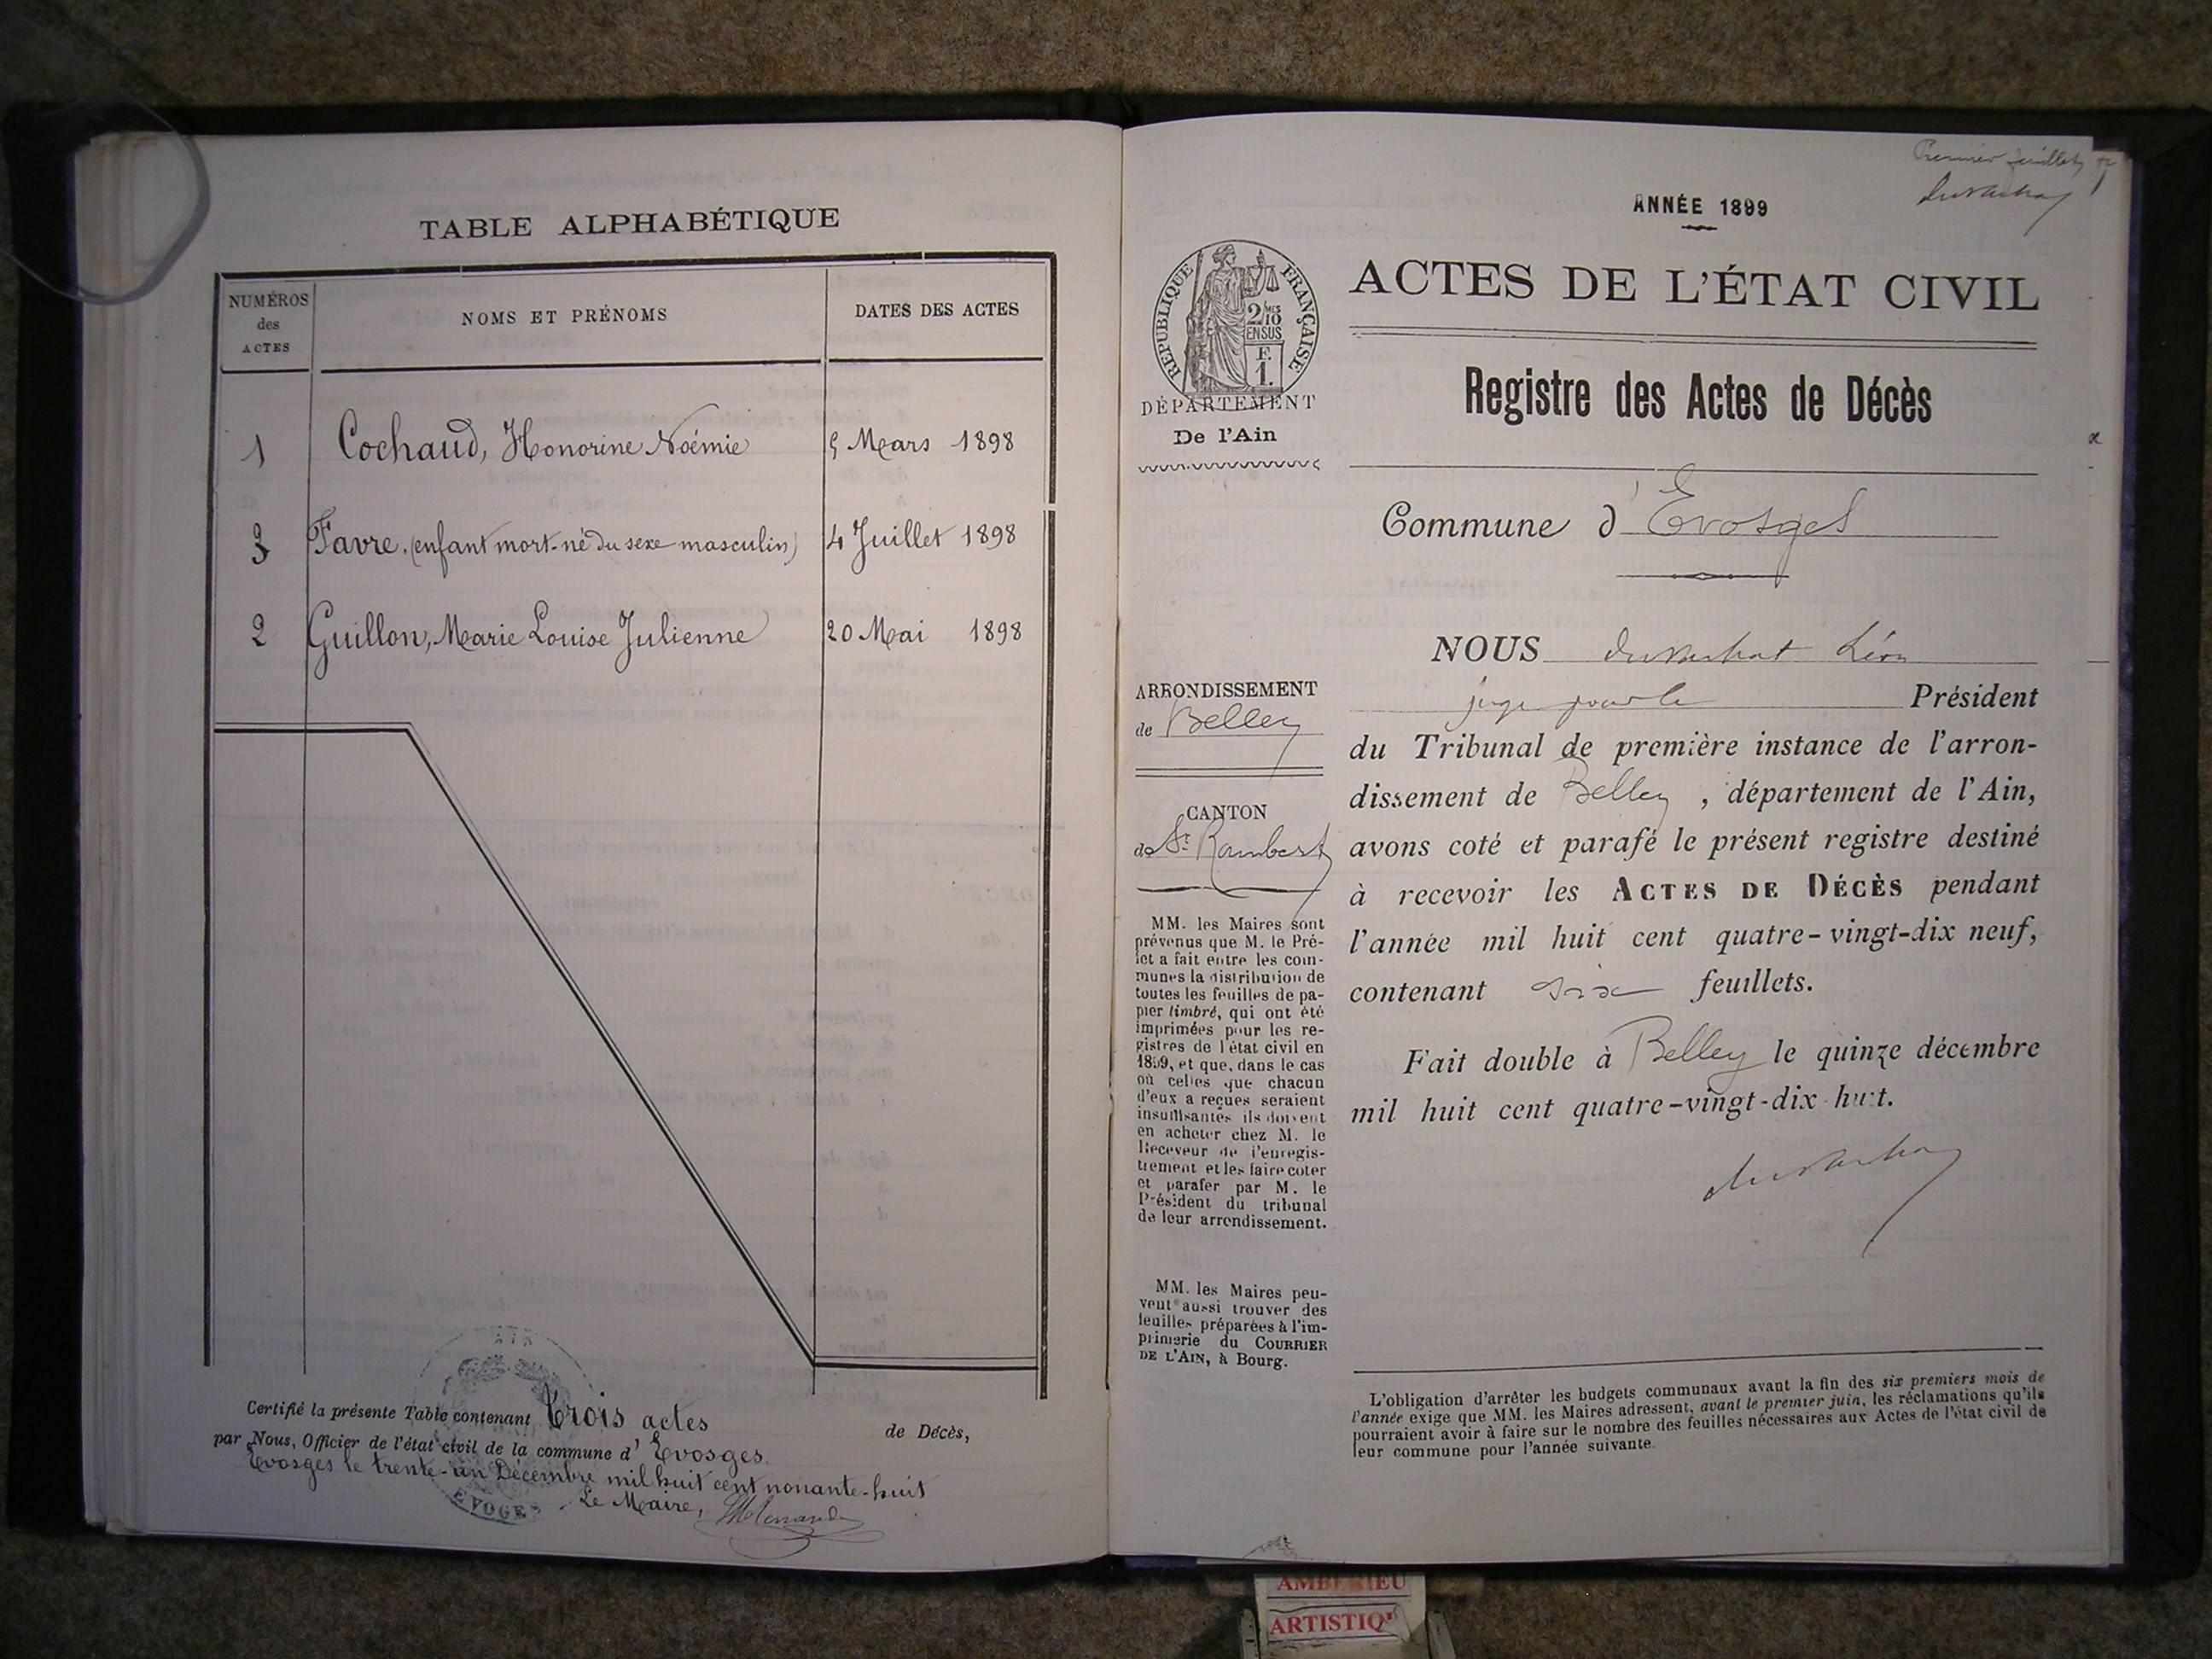 TABLE ALPHABÉTIQUE
NUMÉROS
des
ACTES
NOMS ET PRÉNOMS
DATES DES ACTES
1 Cochaud, Honorine Noémie 5 Mars 1898
3 Favre, (enfant mort-né du sexe masculin) 4 Juillet 1898
2 Guillon, Marie Louise Julienne 20 Mai 1898
Certifié la présente Table contenant Trois actes de Décès,
par Nous, Officier de l'état civil de la commune d' Evosges.
Evosges le trente-un Décembre mil huit cent nonante-huit
Le Maire,
EVOGES
Premier feuillet
ANNÉE 1899
RÉPUBLIQUE FRANÇAISE
2/10 MES
EN SUS
F.
1.
DÉPARTEMENT
De l'Ain
ACTES DE L'ÉTAT CIVIL
Registre des Actes de Décès
Commune d' Evosges
ARRONDISSEMENT
de Belley
CANTON
de St Rambert
MM. les Maires sont
prévenus que M. le Pré-
fet a fait entre les com-
munes la distribution de
toutes les feuilles de pa-
pier timbré, qui ont été
imprimées pour les re-
gistres de l'état civil en
1899, et que, dans le cas
où celles que chacun
d'eux a reçues seraient
insuffisantes ils doivent
en acheter chez M. le
Receveur de l'enregis-
trement et les faire coter
et parafer par M. le
Président du tribunal
de leur arrondissement.
MM. les Maires peu-
vent aussi trouver des
feuilles préparées à l'im-
primerie du COURRIER
DE L'AIN, à Bourg.
NOUS Léon
juge pour le Président
du Tribunal de première instance de l'arron-
dissement de Belley, département de l'Ain,
avons coté et parafé le présent registre destiné
à recevoir les ACTES DE DÉCÈS pendant
l'année mil huit cent quatre-vingt-dix neuf,
contenant six feuillets.
Fait double à Belley le quinze décembre
mil huit cent quatre-vingt-dix-huit.
L'obligation d'arrêter les budgets communaux avant la fin des six premiers mois de
l'année exige que MM. les Maires adressent, avant le premier juin, les réclamations qu'ils
pourraient avoir à faire sur le nombre des feuilles nécessaires aux Actes de l'état civil de
leur commune pour l'année suivante.
AMBERIEU
ARTISTIQ'